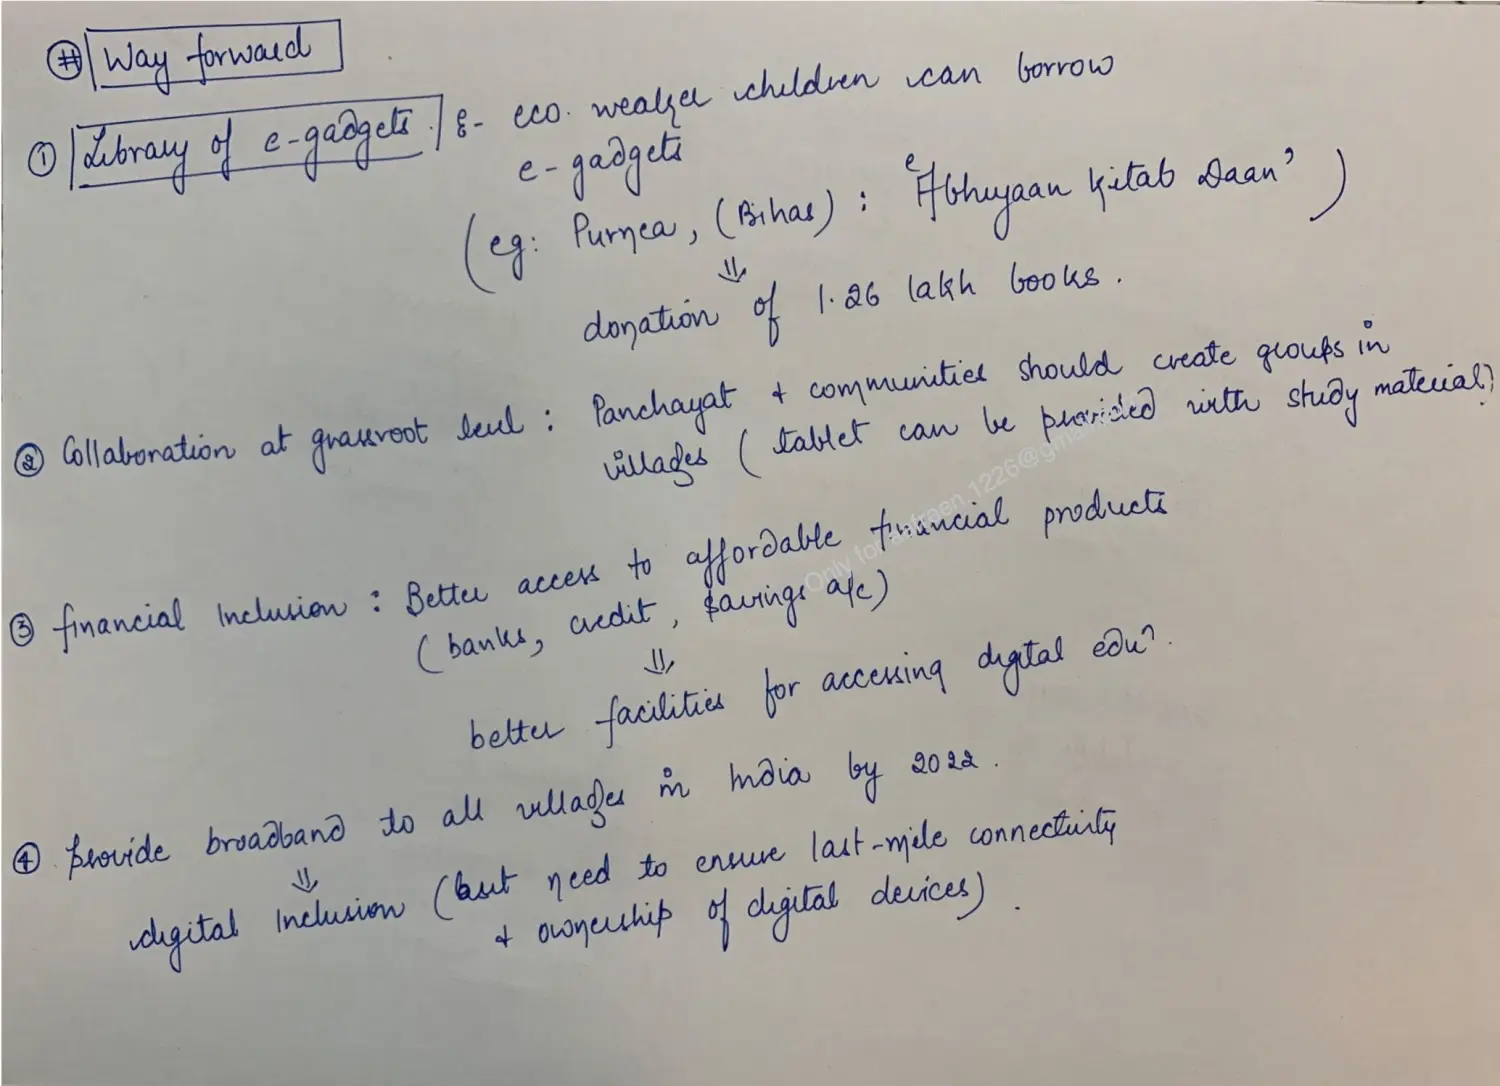 # Way forward
① Library of e-gadgets :- eco. weaker children can borrow
e-gadgets
(eg: Purnea, (Bihar) : 'Abhiyaan Kitab Daan')
⇓
donation of 1.26 lakh books.
② Collaboration at grassroot level : Panchayat + communities should create groups in
villages (tablet can be provided with study material)
③ financial Inclusion : Better access to affordable financial products
(banks, credit, savings a/c)
⇓
better facilities for accessing digital eduⁿ.
④ provide broadband to all villages in India by 2022.
⇓
digital Inclusion (but need to ensure last-mile connectivity
+ ownership of digital devices).